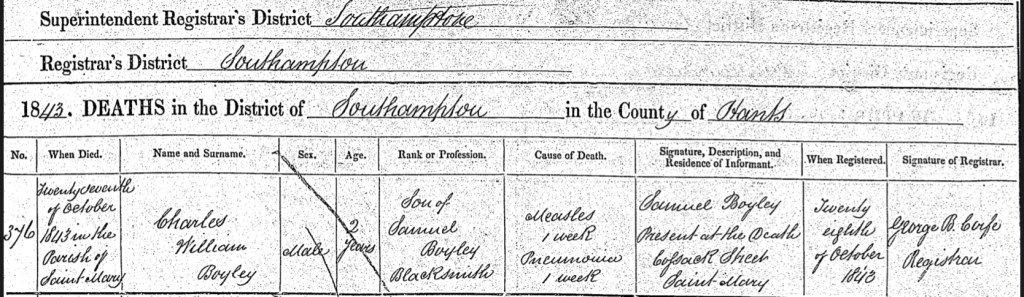 Superintendent Registrar's District Southampton
Registrar's District Southampton
1843. DEATHS in the District of Southampton in the County of Hants
No. When Died. Name and Surname. Sex. Age. Rank or Profession. Cause of Death. Signature, Description, and Residence of Informant. When Registered. Signature of Registrar.
376
Twenty seventh
of October
1843 in the
Parish of
Saint Mary
Charles
William
Boyley
Male
2
Years
Son of
Samuel
Boyley
Blacksmith
Measles
1 week
Pneumonia
1 week
Samuel Boyley
Present at the Death
Cossack Street
Saint Mary
Twenty
eighth
of October
1843
George B.
Registrar